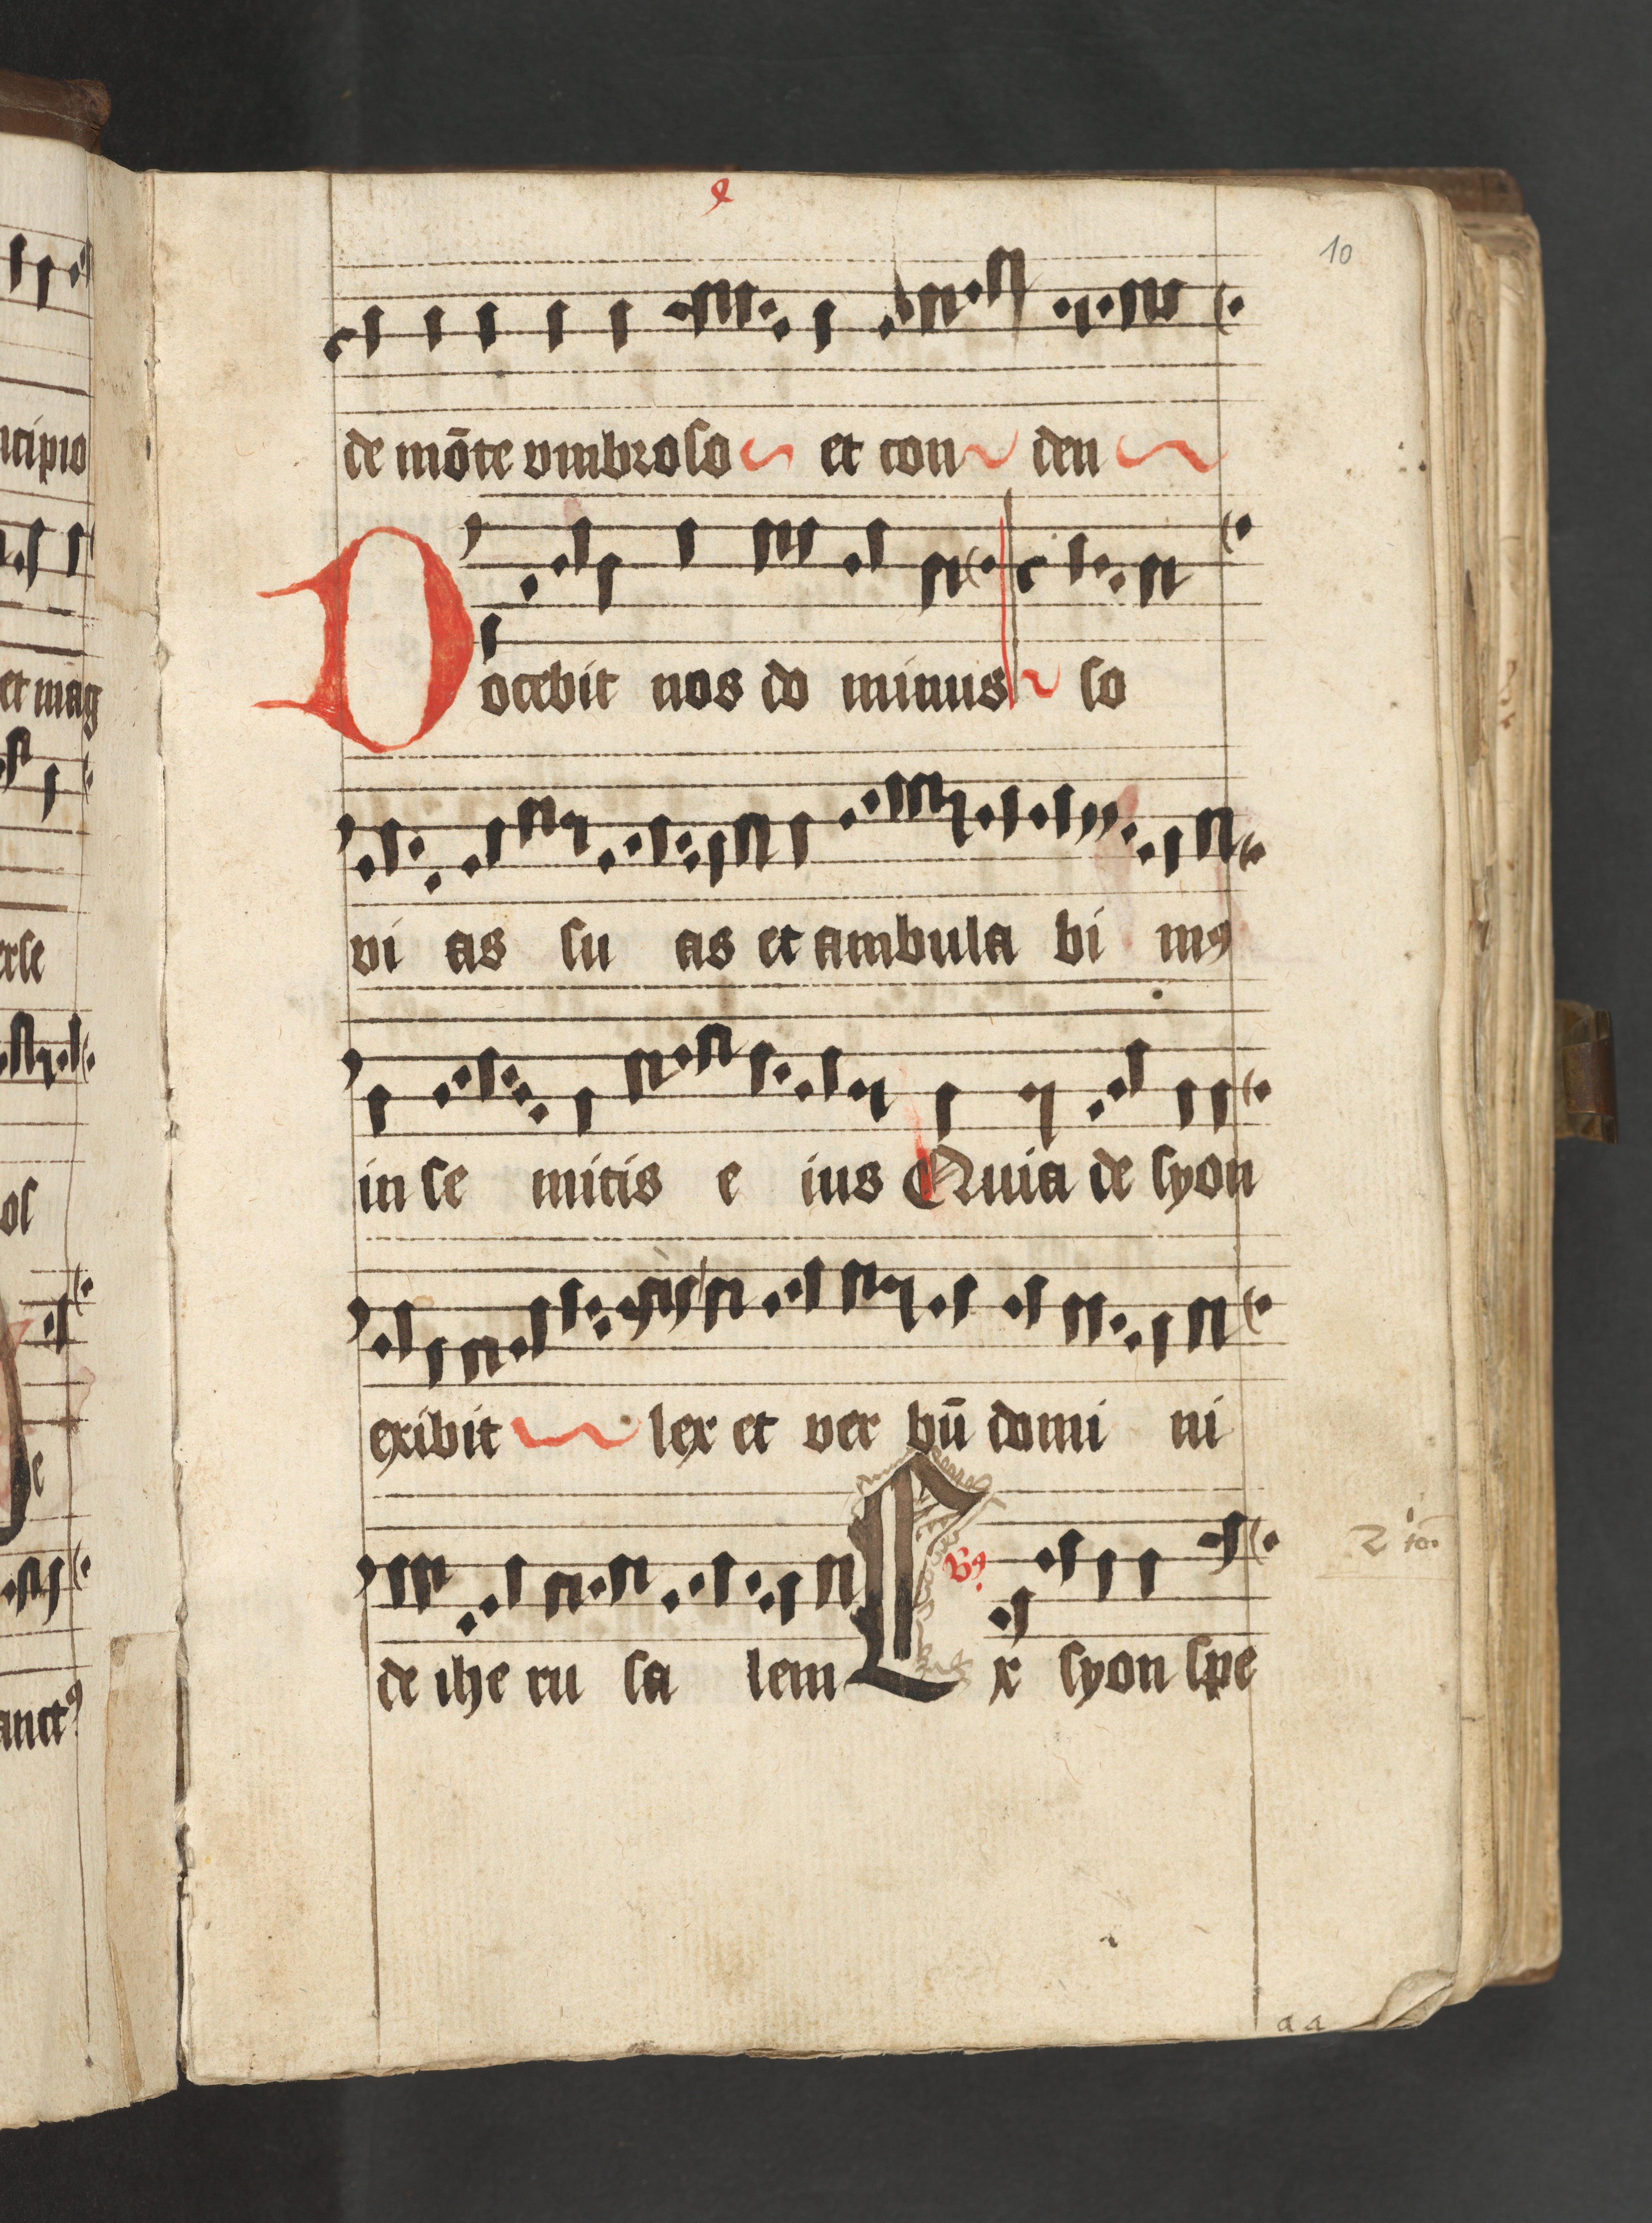 10
de mōte vmbroso et con den
Docebit nos do minus so
vi as su as et ambula bi mꝰ
in se mitis e ius Quia de syon
exibit lex et ver bū domi ni
de ihe ru sa lem Ex syon spe
aa
ncipio
et mag
erse
ol
e
anctꝰ